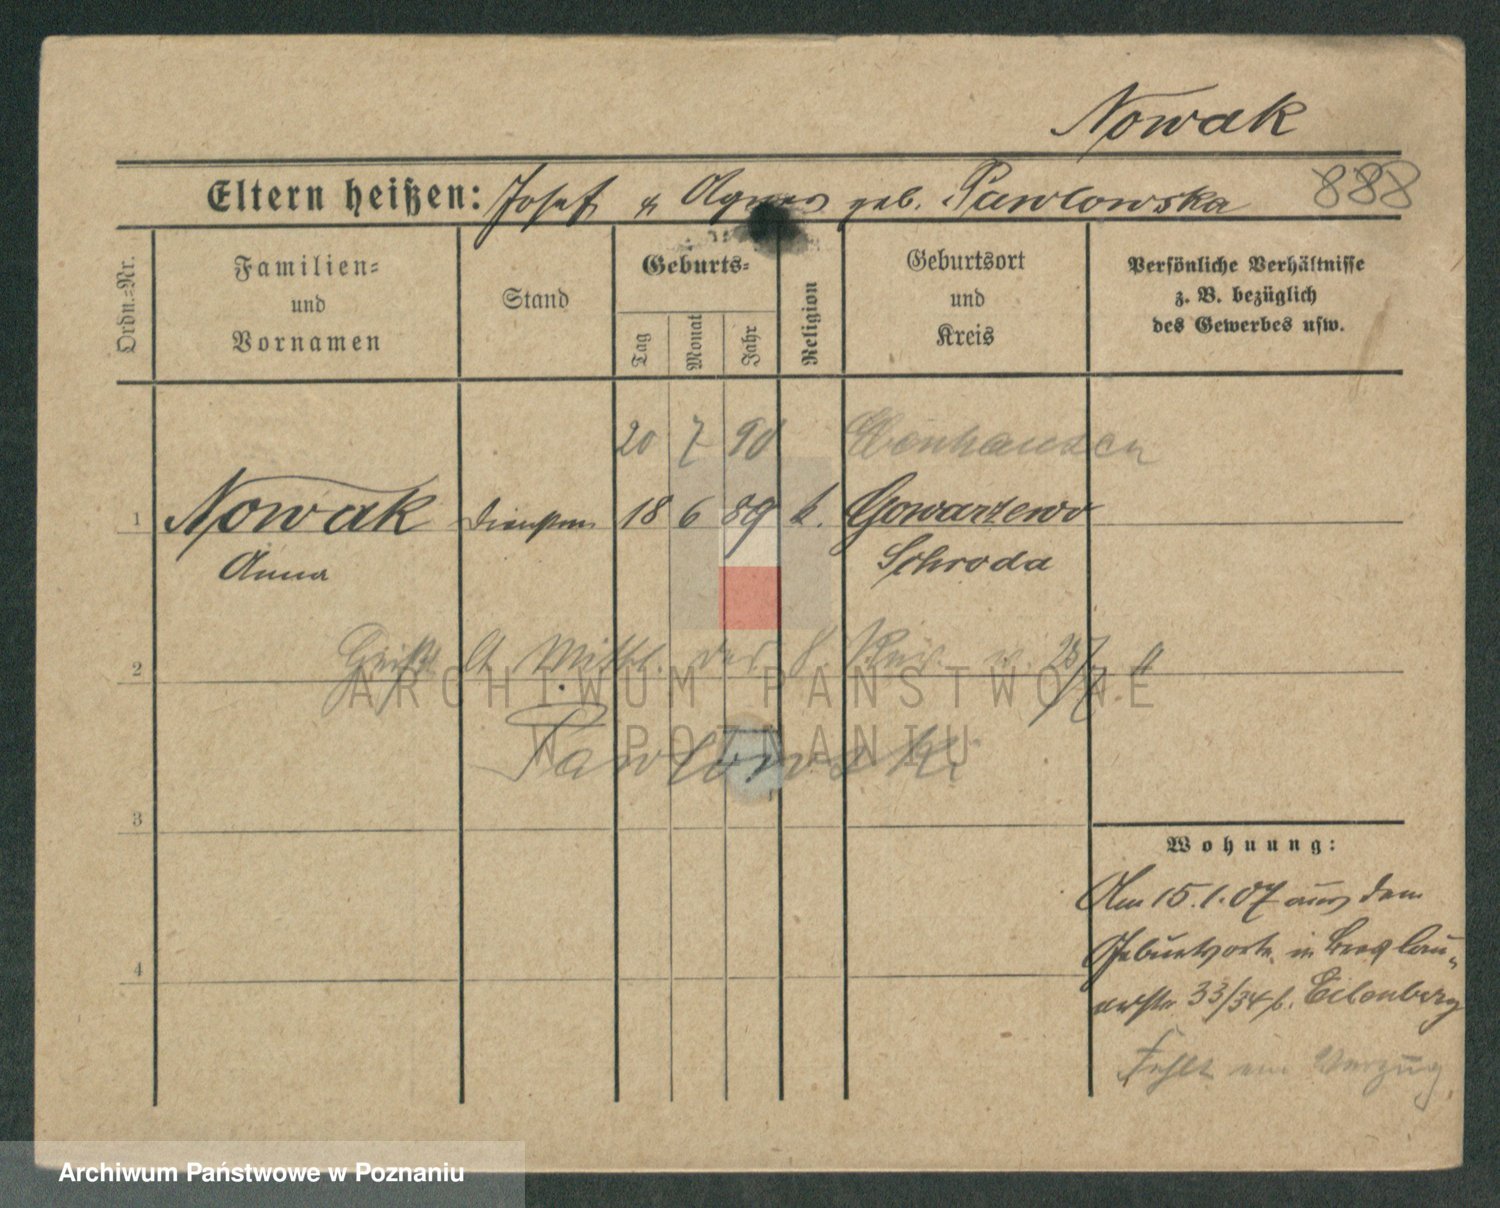 Nowak
888
Eltern heißen: Josef & Agnes geb. Pawlowska
Ordn.=Nr.
Familien=
und
Vornamen
Stand
Geburts=
Tag
Monat
Jahr
Religion
Geburtsort
und
Kreis
Persönliche Verhältnisse
z. B. bezüglich
des Gewerbes usw.
20 7 90
1 Nowak 18 6 89 k. Gowarzewo
Anna Schroda
2 lt Mittl. der
Pawlowski
3
Wohnung:
Am 15.1.07 aus dem
Geburtsorte in Breslau=
erstr 33/34 b. Eilenberg
4
Fehlt ein Verzug
ARCHIWUM PAŃSTWOWE
W POZNANIU
Archiwum Państwowe w Poznaniu